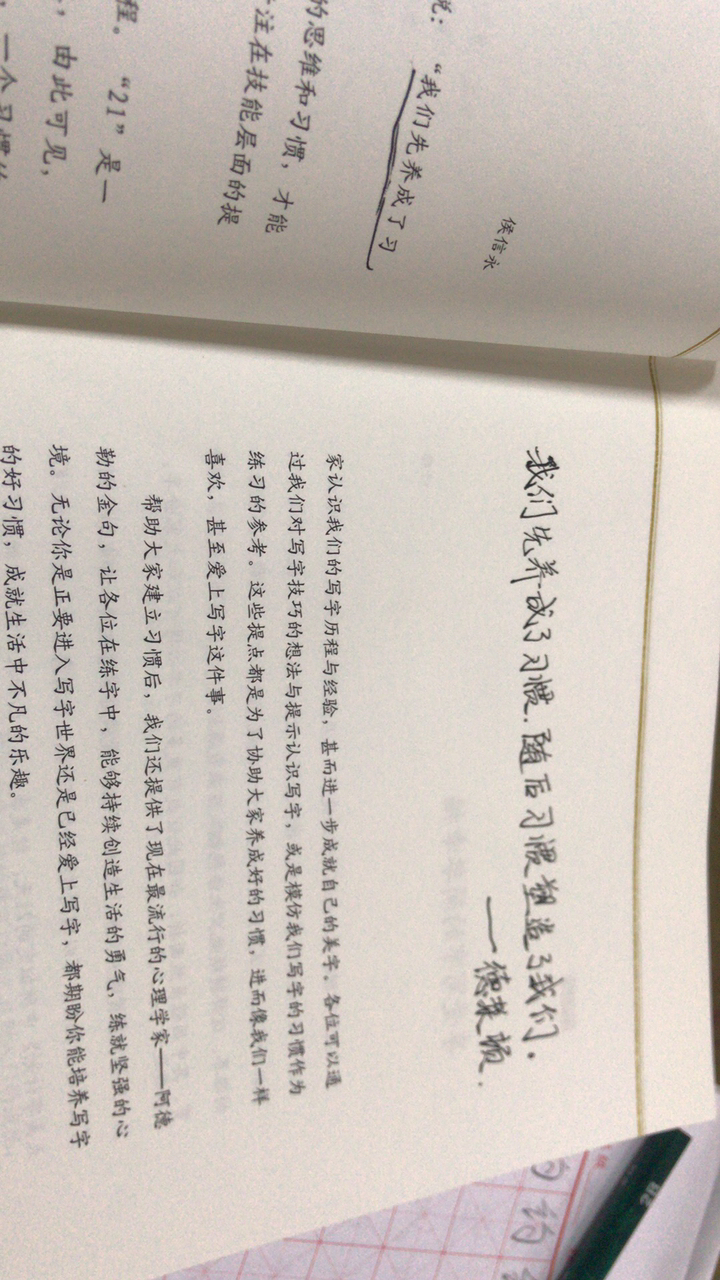 侯信永
说：“我们先养成了习
的思维和习惯，才能
注在技能层面的提
程。“21”是一
，由此可见，
一个习惯的
我们先养成了习惯.随后习惯塑造了我们.
——德莱顿.
家认识我们的写字历程与经验，甚而进一步成就自己的美字。各位可以通
过我们对写字技巧的想法与提示认识写字，或是模仿我们写字的习惯作为
练习的参考。这些提点都是为了协助大家养成好的习惯，进而像我们一样
喜欢，甚至爱上写字这件事。
帮助大家建立习惯后，我们还提供了现在最流行的心理学家——阿德
勒的金句，让各位在练字中，能够持续创造生活的勇气，练就坚强的心
境。无论你是正要进入写字世界还是已经爱上写字，都期盼你能培养写字
的好习惯，成就生活中不凡的乐趣。
2B